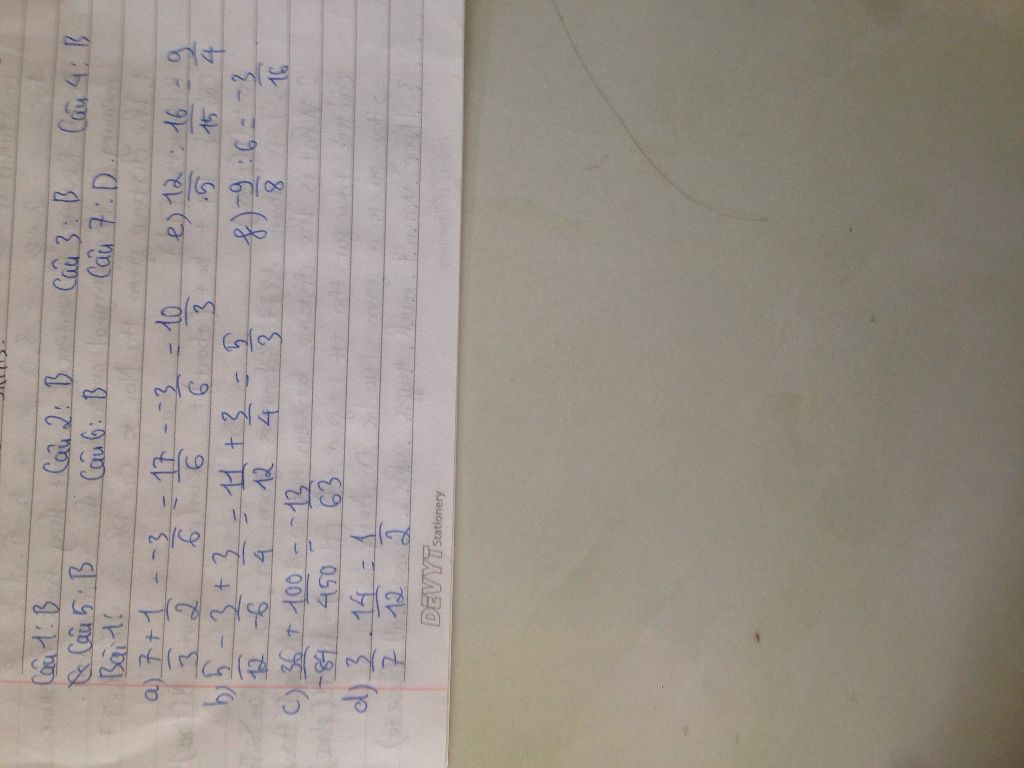 Câu 1: B Câu 2: B Câu 3: B Câu 4: B
Câu 5: B Câu 6: B Câu 7: D
Bài 1:
a) 7/3 + 1/2 - -3/6 = 17/6 - -3/6 = 10/3
b) 5/12 - 3/-6 + 3/4 = 11/12 + 3/4 = 5/3
c) 36/-84 + 100/450 = -13/63
d) 3/7 . 14/12 = 1/2
e) 12/5 : 16/15 = 9/4
f) -9/8 : 6 = -3/16
DEVYT Stationery